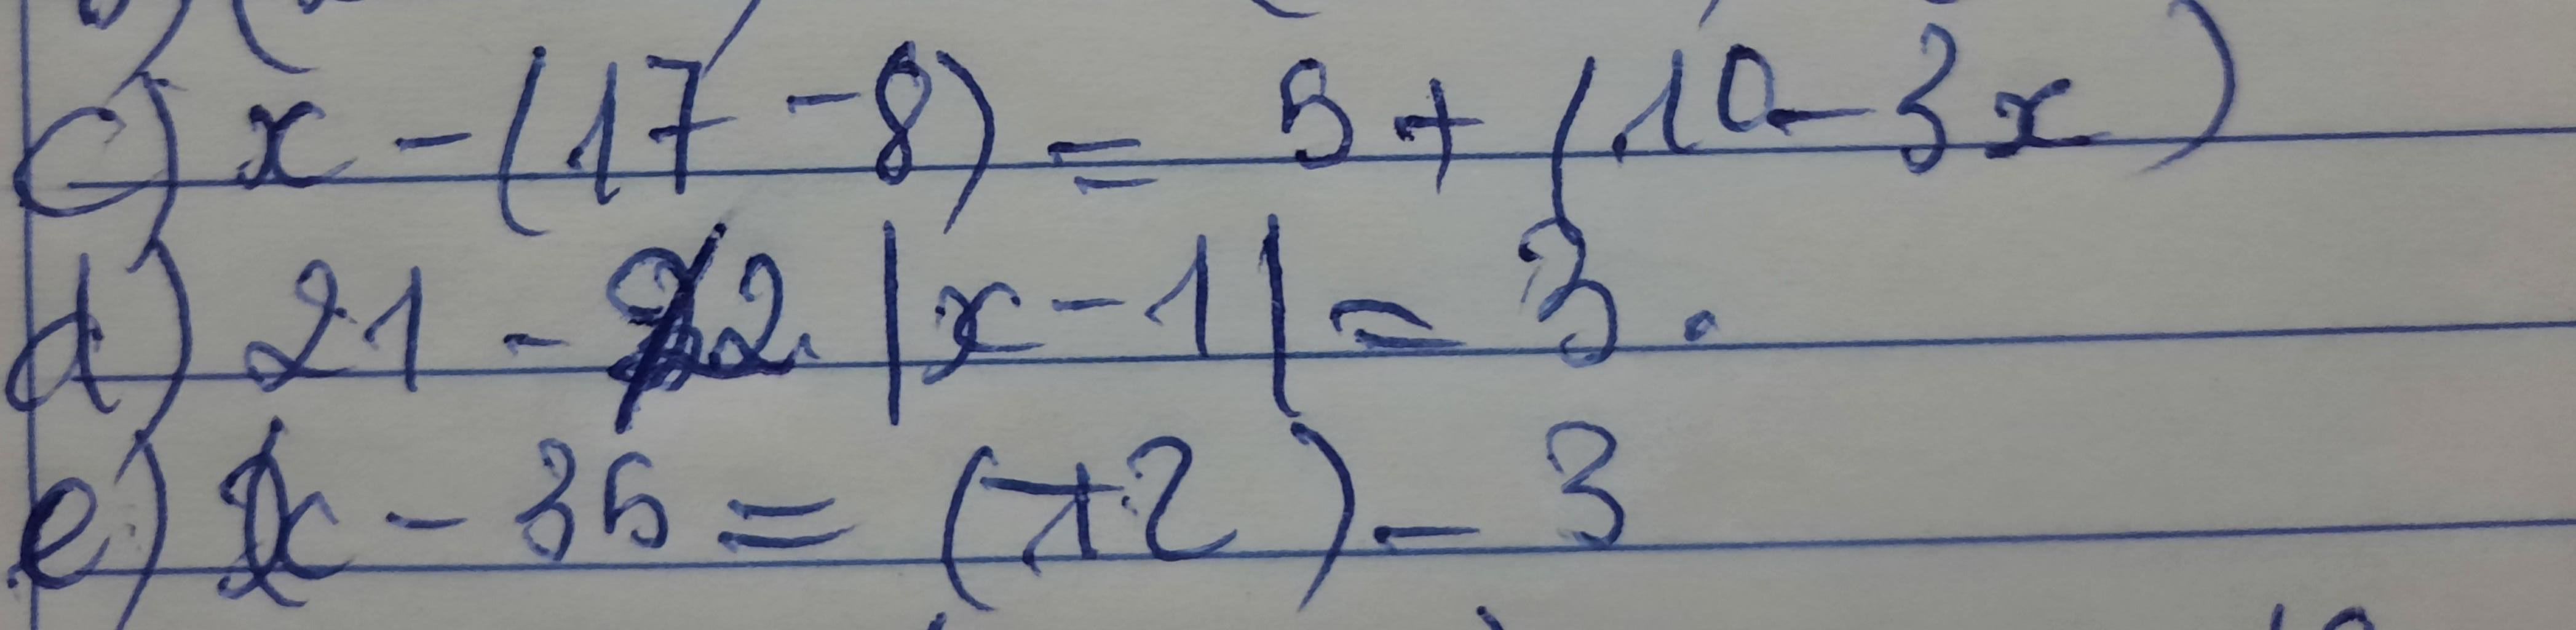 c) x - (17 - 8) = 5 + (10 - 3x)
d) 21 - 2. |x - 1| = 3.
e) x - 35 = (-12) - 3